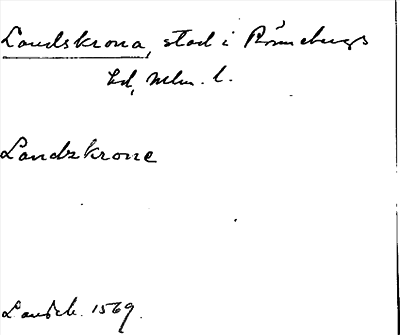 Landskrona, stad i Rönnebergs
hd, Mlm. l.
Landzkrone
Landzb. 1569.